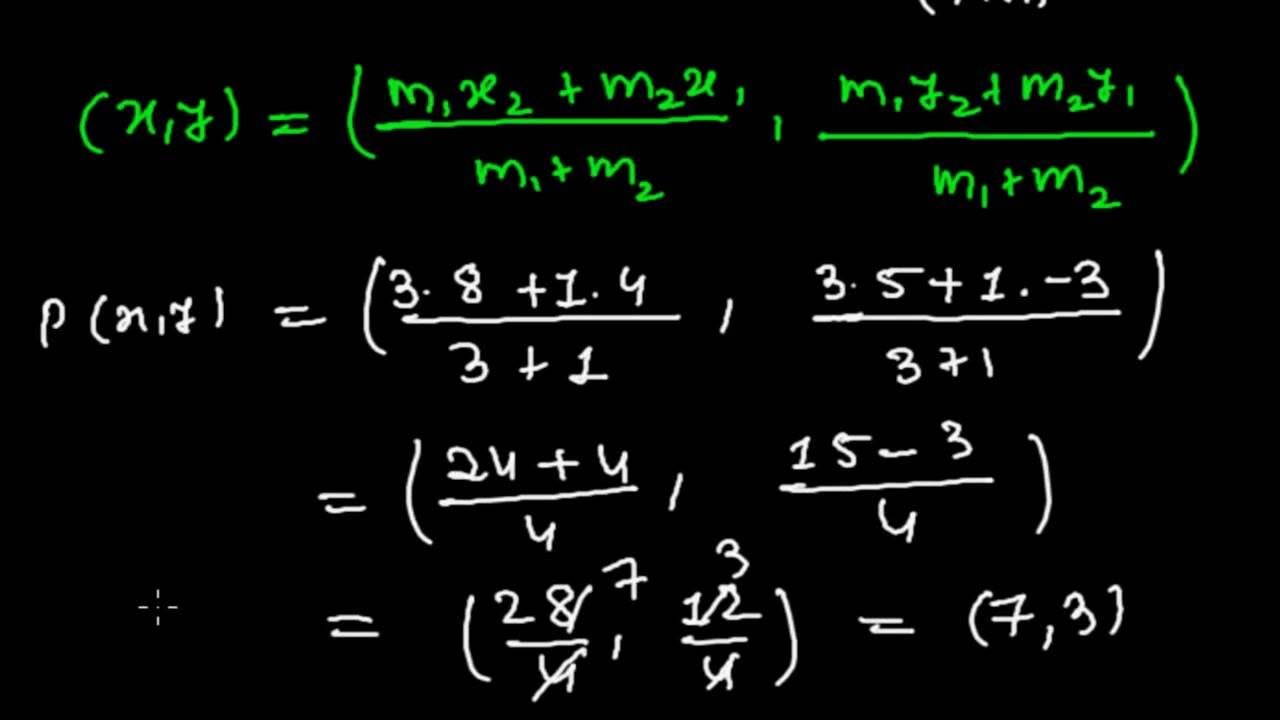 (x,y) = ( m₁x₂ + m₂x₁ / m₁ + m₂ , m₁y₂ + m₂y₁ / m₁ + m₂ )
P (x,y) = ( 3. 8 + 1. 4 / 3 + 1 , 3. 5 + 1. -3 / 3 + 1 )
= ( 24 + 4 / 4 , 15 - 3 / 4 )
= ( 28 / 4 7 , 12 / 4 3 ) = (7, 3)